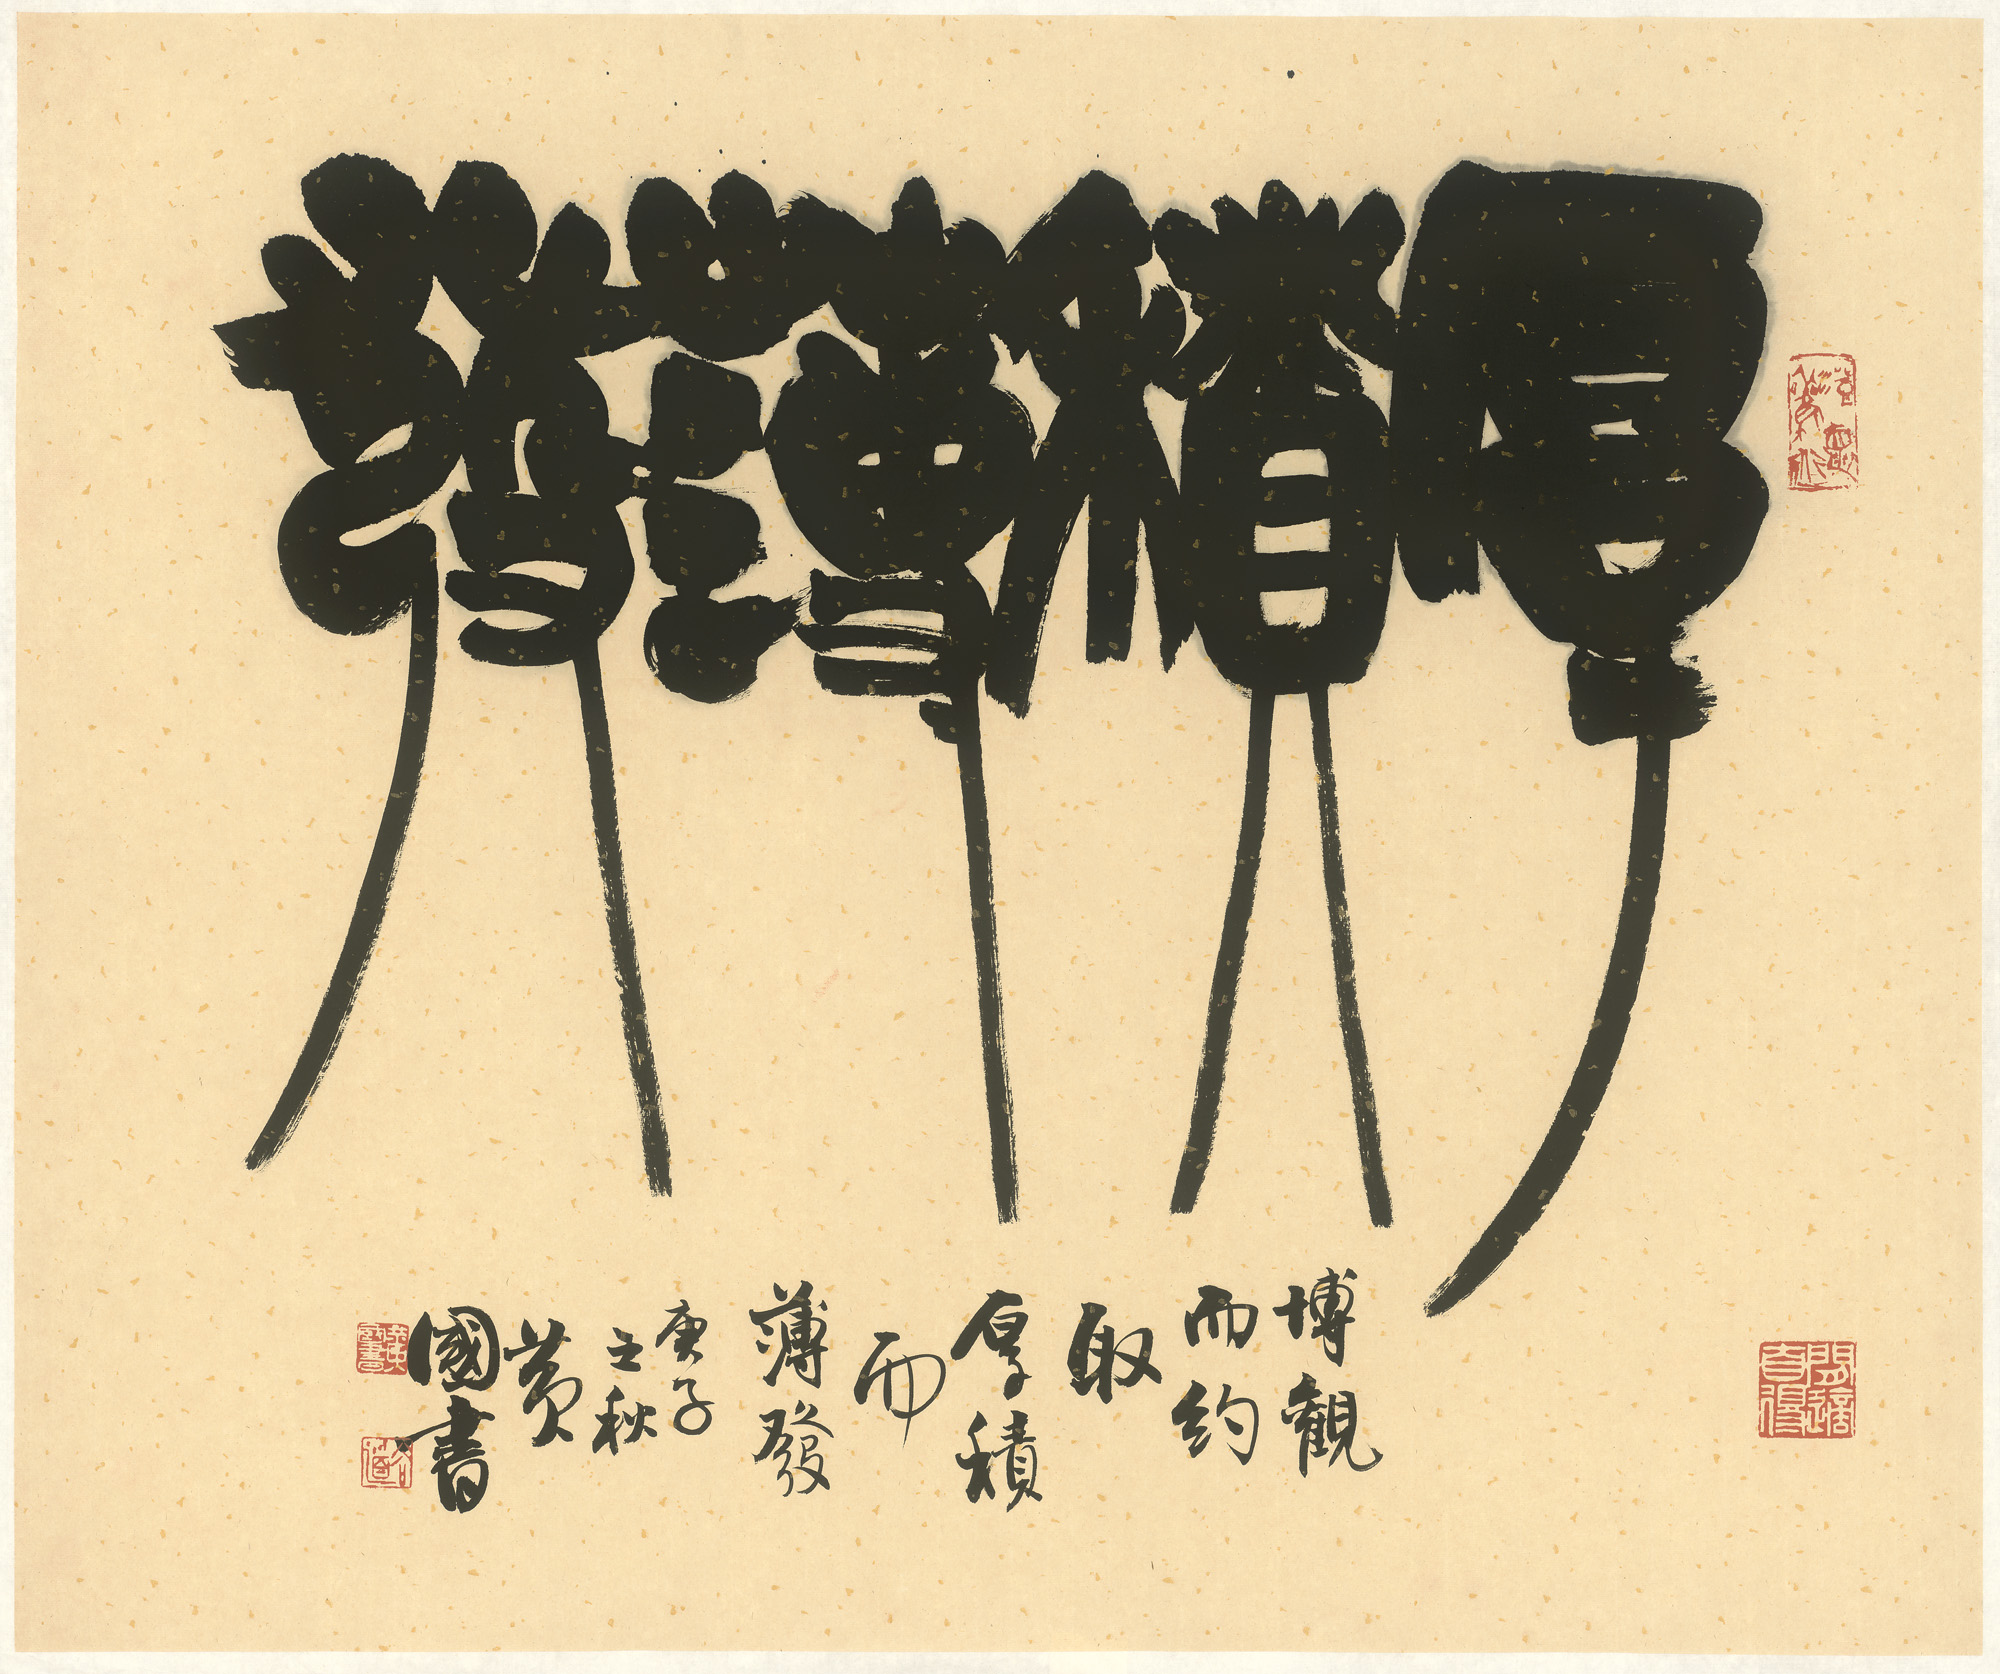 厚積薄發
博觀
而約
取
厚積
而
薄發
庚子
之秋
黃
國書